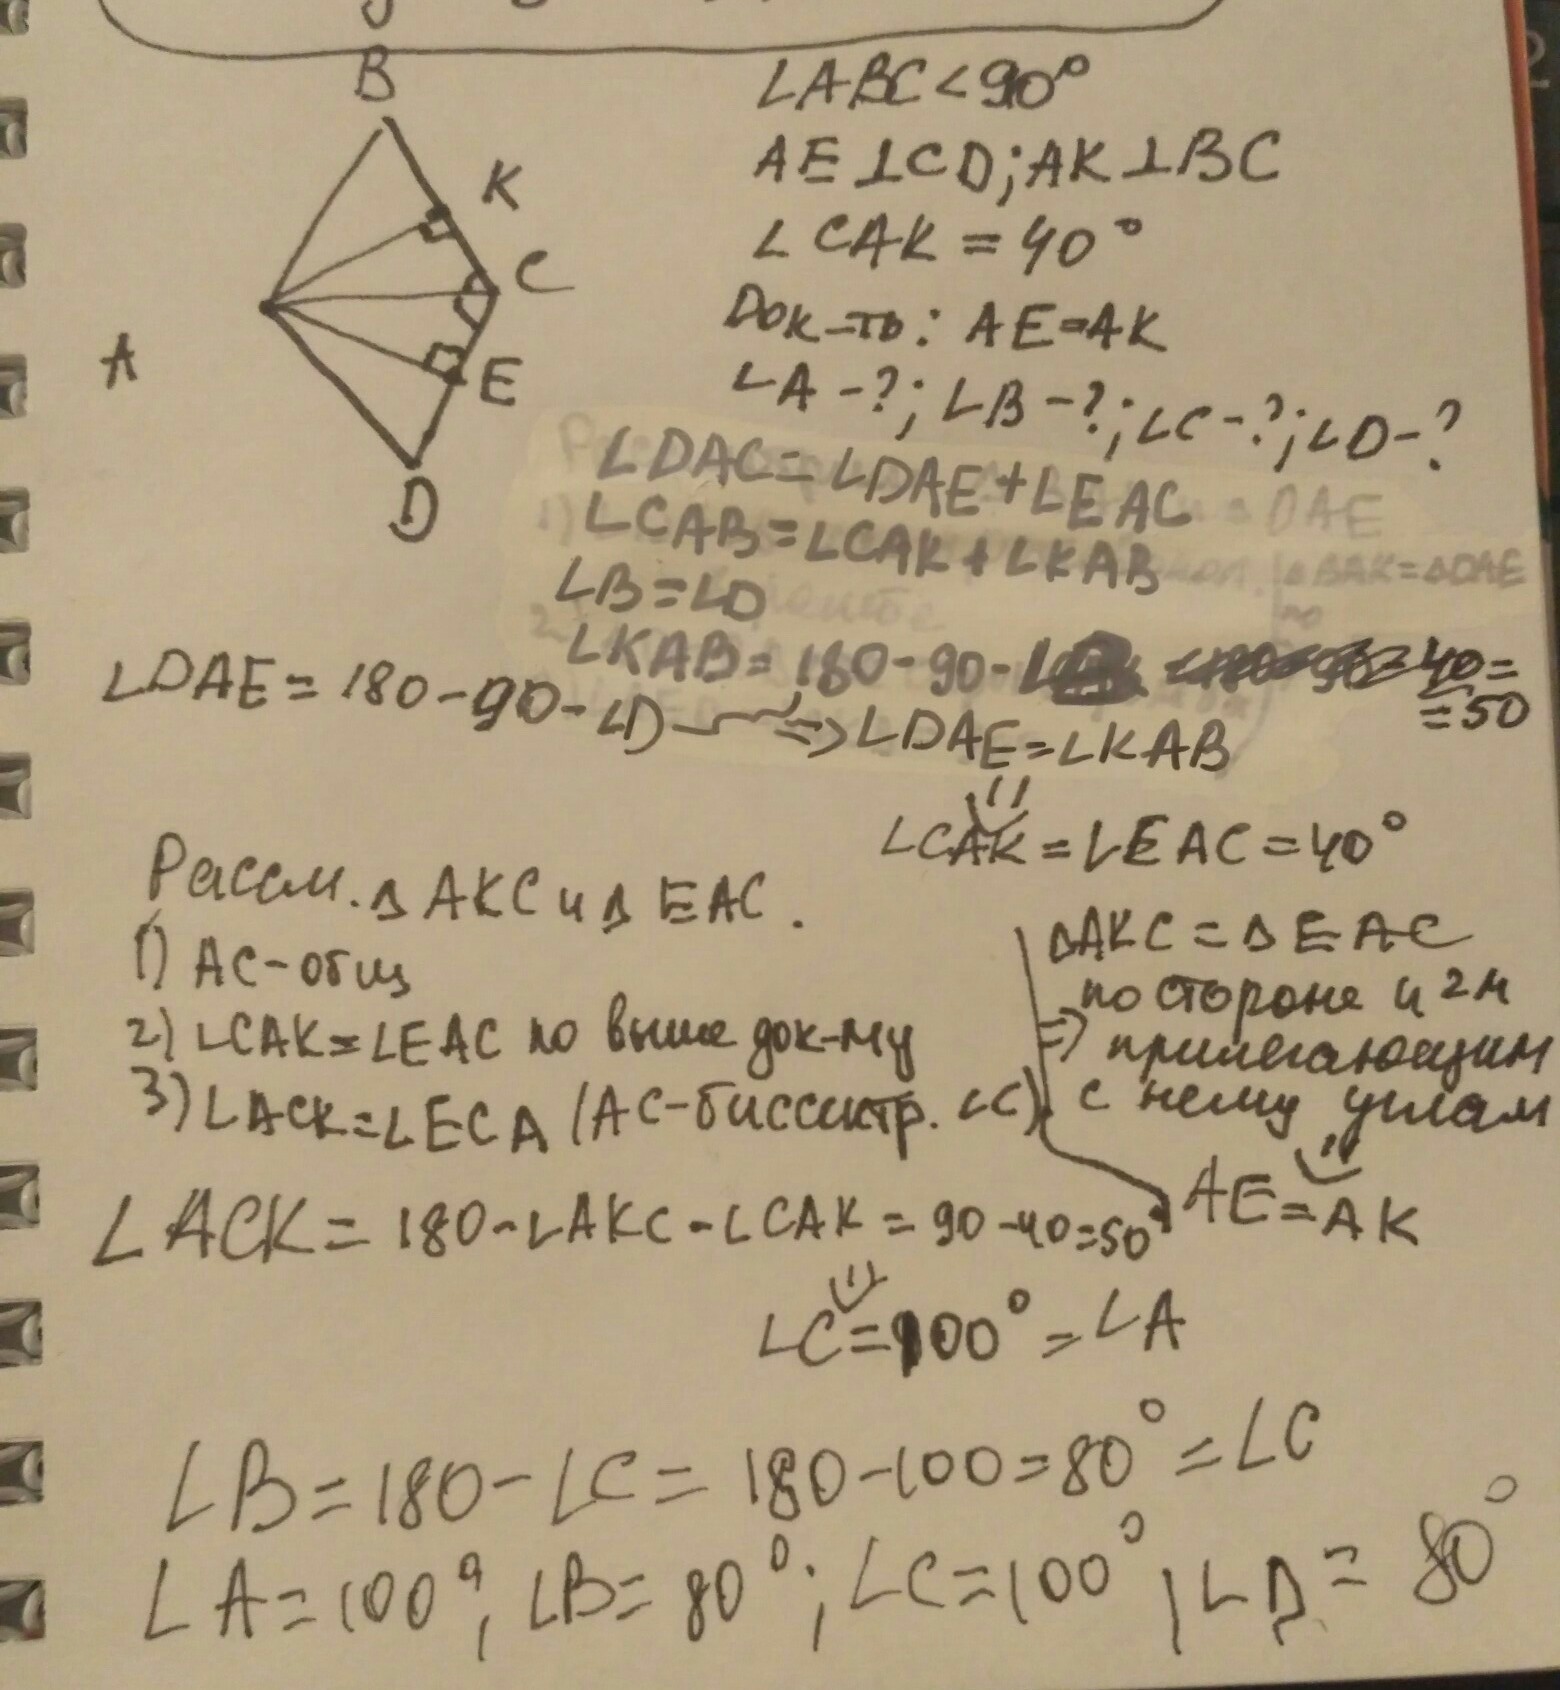 B
K
C
A
E
D
∠ABC<90°
AE⊥CD; AK⊥BC
∠CAK = 40°
Док-ть: AE=AK
∠A-?; ∠B-?; ∠C-?; ∠D-?
∠DAC=∠DAE+∠EAC
∠CAB=∠CAK+∠KAB
∠B=∠D
∠KAB=180-90-∠B 40=
=50
∠DAE=180-90-∠D => ∠DAE=∠KAB
∠CAK=∠EAC=40°
Рассм. ΔAKC и ΔEAC.
1) AC-общ
2) ∠CAK=∠EAC по выше док-му
3) ∠ACK=∠ECA (AC-биссектр. ∠C)
=> ΔAKC = ΔEAC
по стороне и 2м
прилегающим
с нему углам
AE=AK
∠ACK=180-∠AKC-∠CAK=90-40=50°
∠C=100°=∠A
∠B=180-∠C=180-100=80°=∠C
∠A=100°, ∠B=80°; ∠C=100°, ∠D=80°